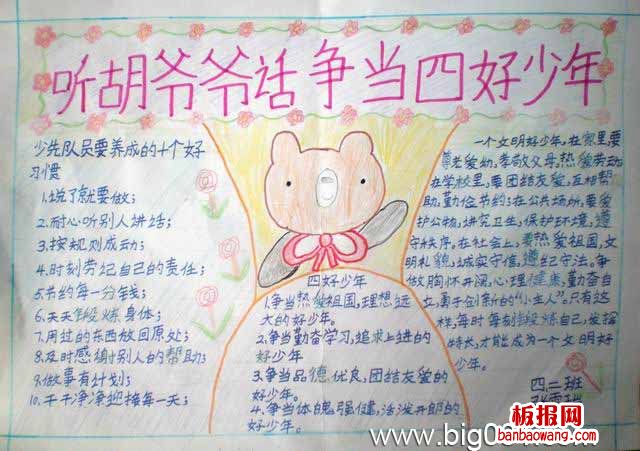 听胡爷爷话争当四好少年
少先队员要养成的十个好
习惯
1.说了就要做；
2.耐心听别人讲话；
3.按规则成动；
4.时刻劳记自己的责任；
5.节约每一分钱；
6.天天锻炼身体；
7.用过的东西放回原处；
8.及时感谢别人的帮助；
9.做事有计划；
10.干干净净迎接每一天；
四好少年
1.争当热爱祖国，理想远
大的好少年。
2.争当勤奋学习，追求上进的
好少年
3.争当品德优良，团结友爱的
好少年。
4.争当体魄强健，活泼开朗的
好少年。
一个文明好少年，在家里，要
尊老爱幼，孝敬父母，热爱劳动
在学校里，要团结友爱，互相帮
助，勤俭节约；在公共场所，要爱
护公物，讲究卫生，保护环境，遵
守秩序。在社会上，要热爱祖国，文
明礼貌，诚实守信，遵纪守法。争
做胸怀开阔，心理健康，勤奋自
立，勇于创新的"小主人"。只有这
样，每时每刻锻炼自己，发挥
特长，才能成为一个文明好
少年。
四、二班
板报网
www.big
banbaowang.com